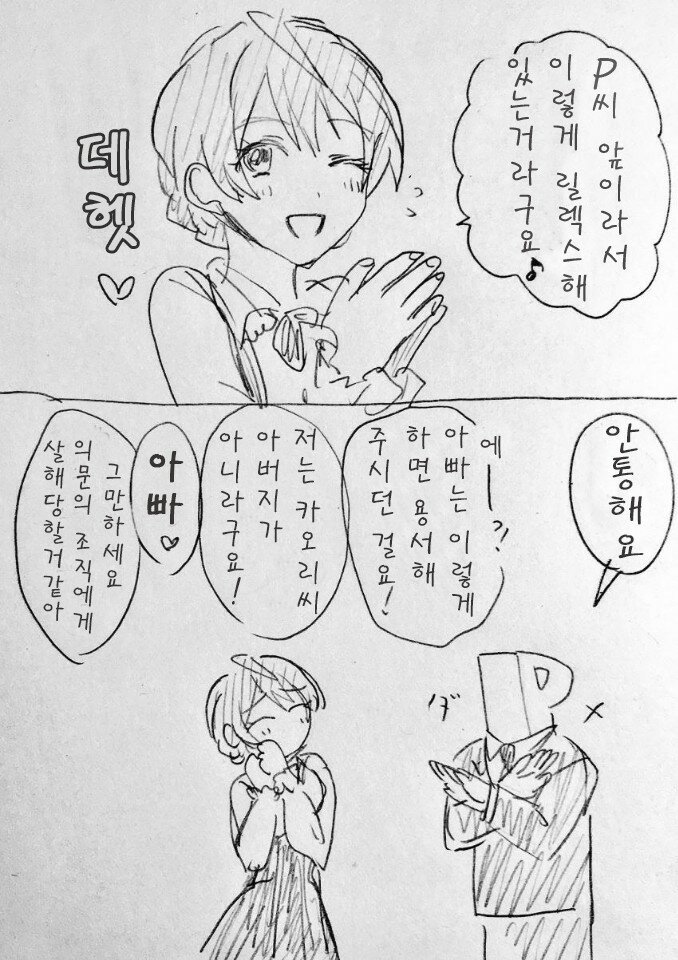 P씨 앞이라서
이렇게 릴렉스해
있는거라구요♪
데헷
♡
안통해요
에ー?!
아빠는 이렇게
하면 용서해
주시던 걸요!
저는 카오리씨
아버지가
아니라구요!
아빠♡
그만하세요
의문의 조직에게
살해당할거같아
ダ
×
P